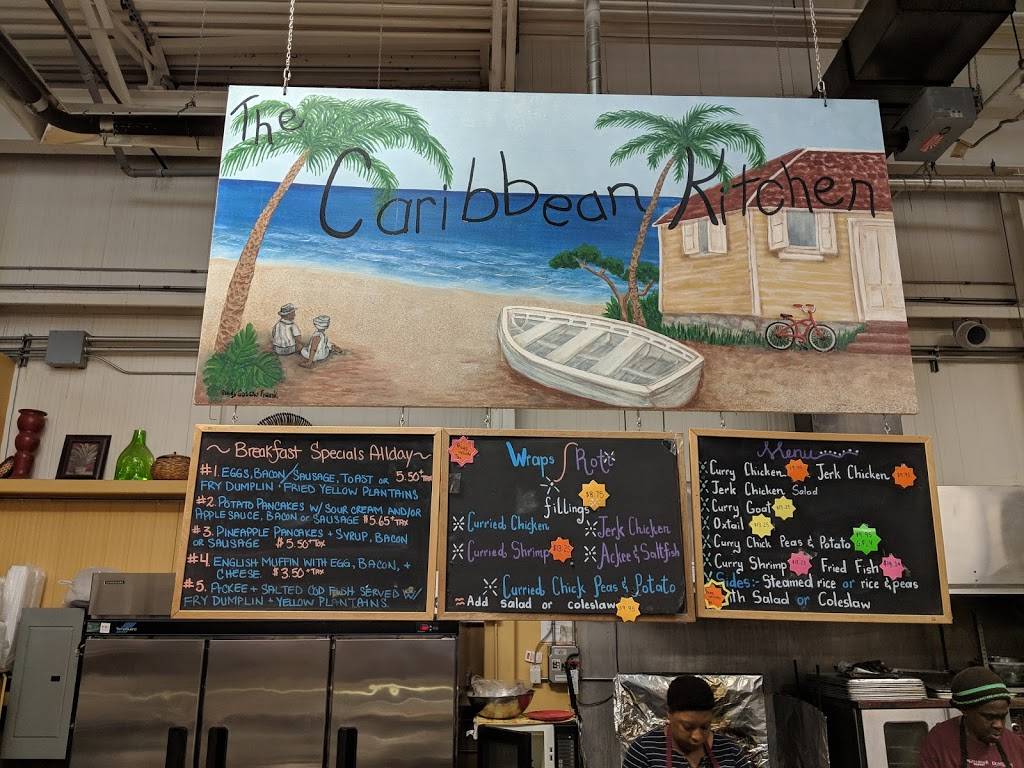 The Caribbean Kitchen
~ Breakfast Specials Allday ~
#1. EGGS, BACON/SAUSAGE, TOAST OR 5.50+TAX
FRY DUMPLIN FRIED YELLOW PLANTAINS
#2. POTATO PANCAKES W/ SOUR CREAM AND/OR
APPLESAUCE, BACON OR SAUSAGE $5.65+TAX
#3. PINEAPPLE PANCAKES + SYRUP, BACON
OR SAUSAGE $5.50+TAX
#4. ENGLISH MUFFIN WITH EGG, BACON, +
CHEESE. $3.50+TAX
#5. ACKEE + SALTED COD FISH SERVED W/
FRY DUMPLIN + YELLOW PLANTAINS.
Wraps / Roti
fillings $8.75
Curried Chicken
Jerk Chicken
Curried Shrimp
Ackee & Saltfish
Curried Chick Peas & Potato
Add salad or coleslaw $9.95
Menu
Curry Chicken Jerk Chicken
Jerk Chicken Salad
Curry Goat
Oxtail
Curry Chick Peas & Potato
Curry Shrimp Fried Fish
Sides:- Steamed rice or rice & peas
Salad or Coleslaw